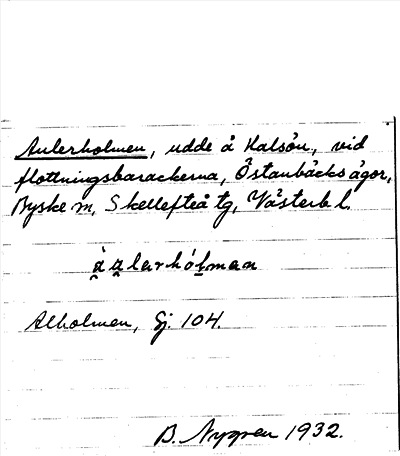 Aulerholmen, udde å Halsön, vid
flottningsbarackerna, Östanbäcks ägor,
Byske sn, Skellefteå tg, Västerb l.
Alholmen, Gj. 104.
B. Nygren 1932.